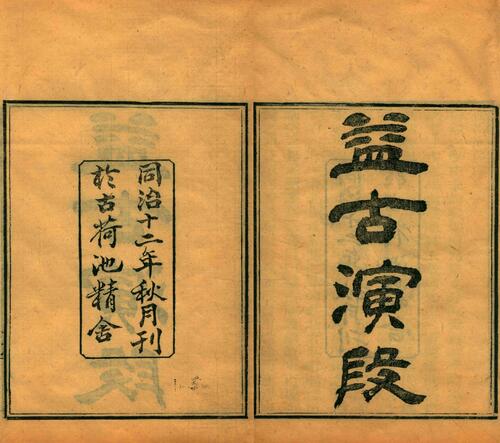 益古演段
同治十二年秋月刊
於古荷池精舍